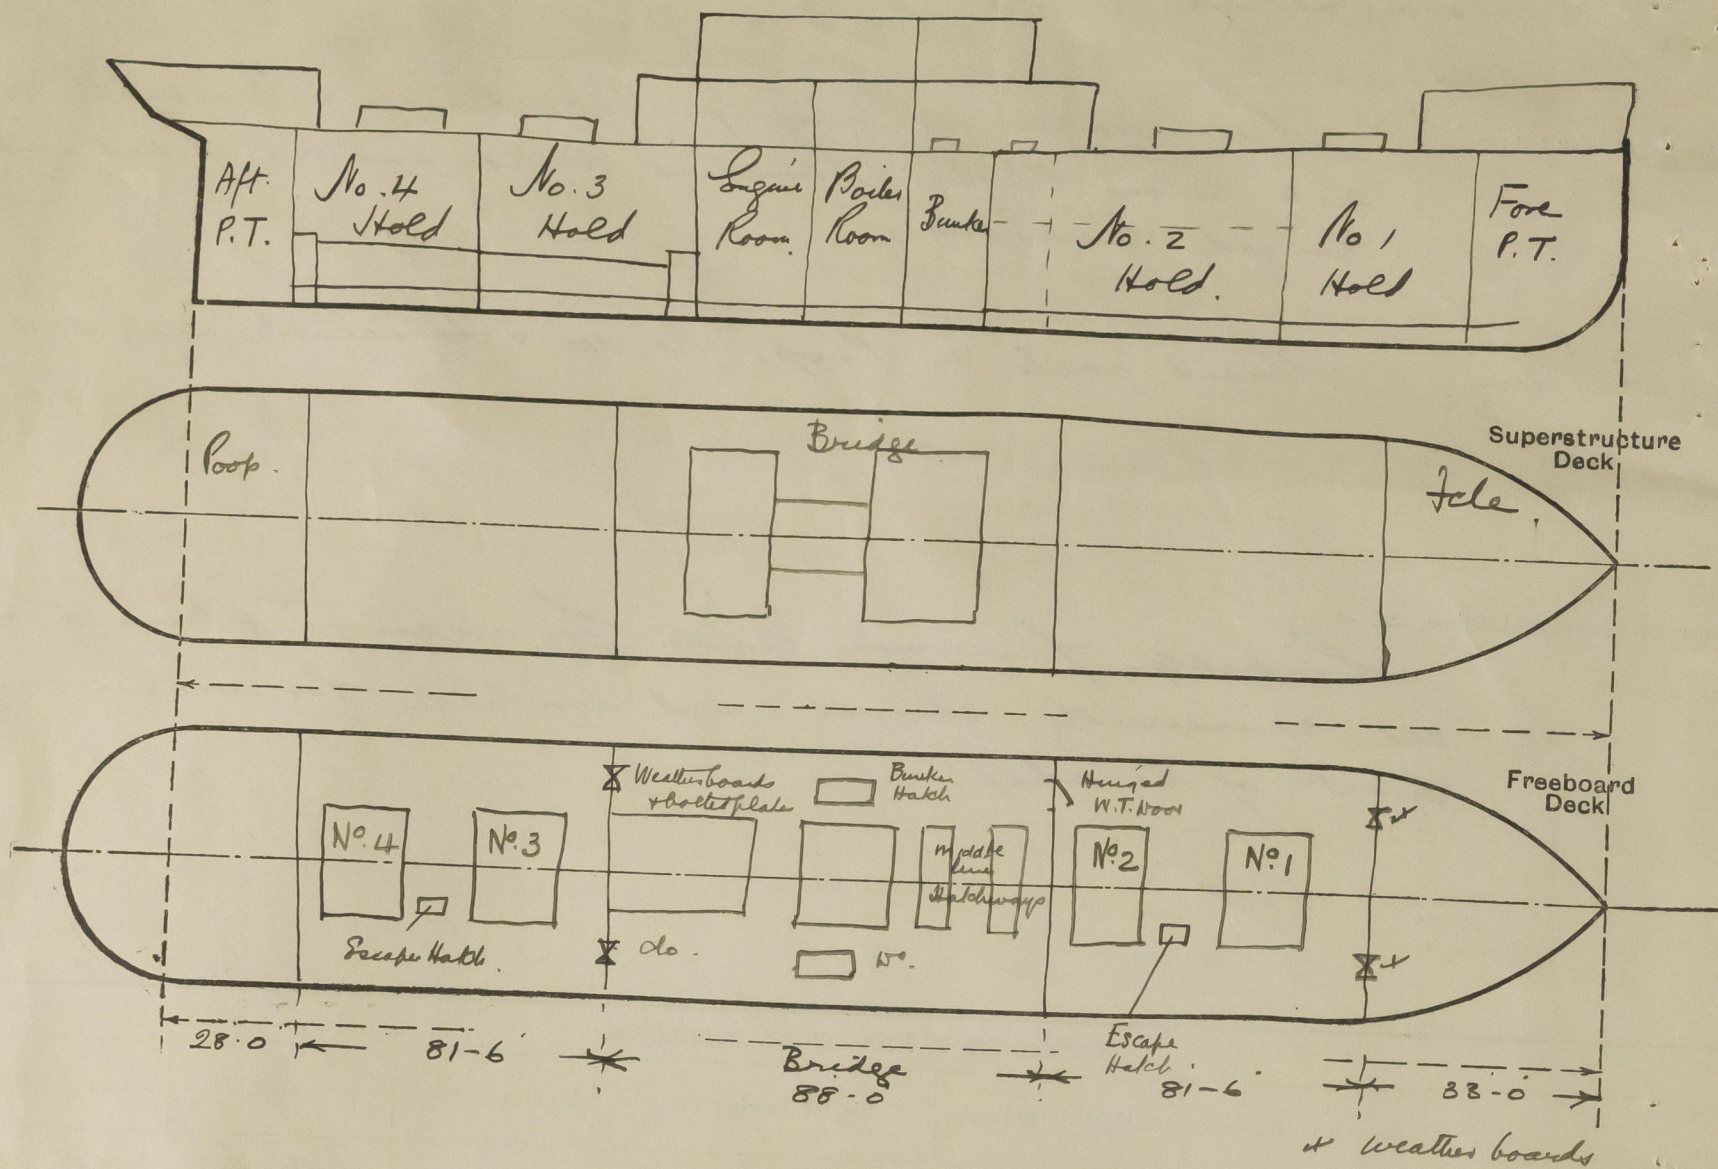 Aft.
P.T.
No. 4
Hold
No. 3
Hold
Engine
Room.
Boiler
Room
Bunker
No. 2
Hold.
No 1
Hold
Fore
P.T.
Superstructure
Deck
Poop.
Bridge
Fcle.
Freeboard
Deck
Weatherboards
Bunker
Hatch
Hinged
W.T. Door
No. 4
No. 3
middle
line
Hatchways
No. 2
No. 1
Escape Hatch.
do.
Do.
Escape
Hatch
28.0
81-6
Bridge
88-0
81-6
33-0
+ weather boards